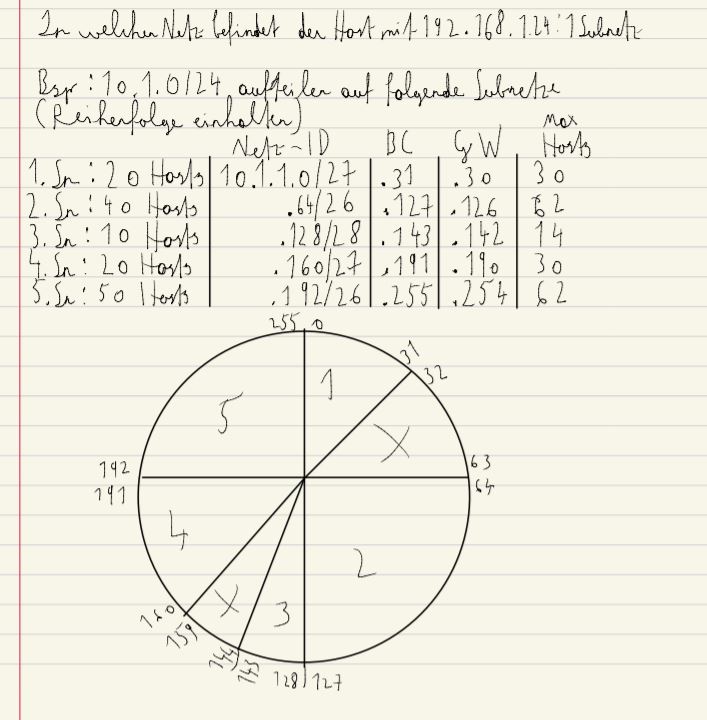 In welchen Netz befindet der Host mit 192.168.1.24:1 Subnetz
Bsp: 10.1.0/24 aufteilen auf folgende Subnetze
(Reihenfolge einhalten)
Netz-ID BC GW Max Hosts
1. Sn: 20 Hosts 10.1.1.0/27 .31 .30 30
2. Sn: 40 Hosts .64/26 .127 .126 62
3. Sn: 10 Hosts .128/28 .143 .142 14
4. Sn: 20 Hosts .160/27 .191 .190 30
5. Sn: 50 Hosts .192/26 .255 .254 62
255 0
31
32
1
5
X
63
64
192
191
4
2
X
3
160
159
144
143
128 127